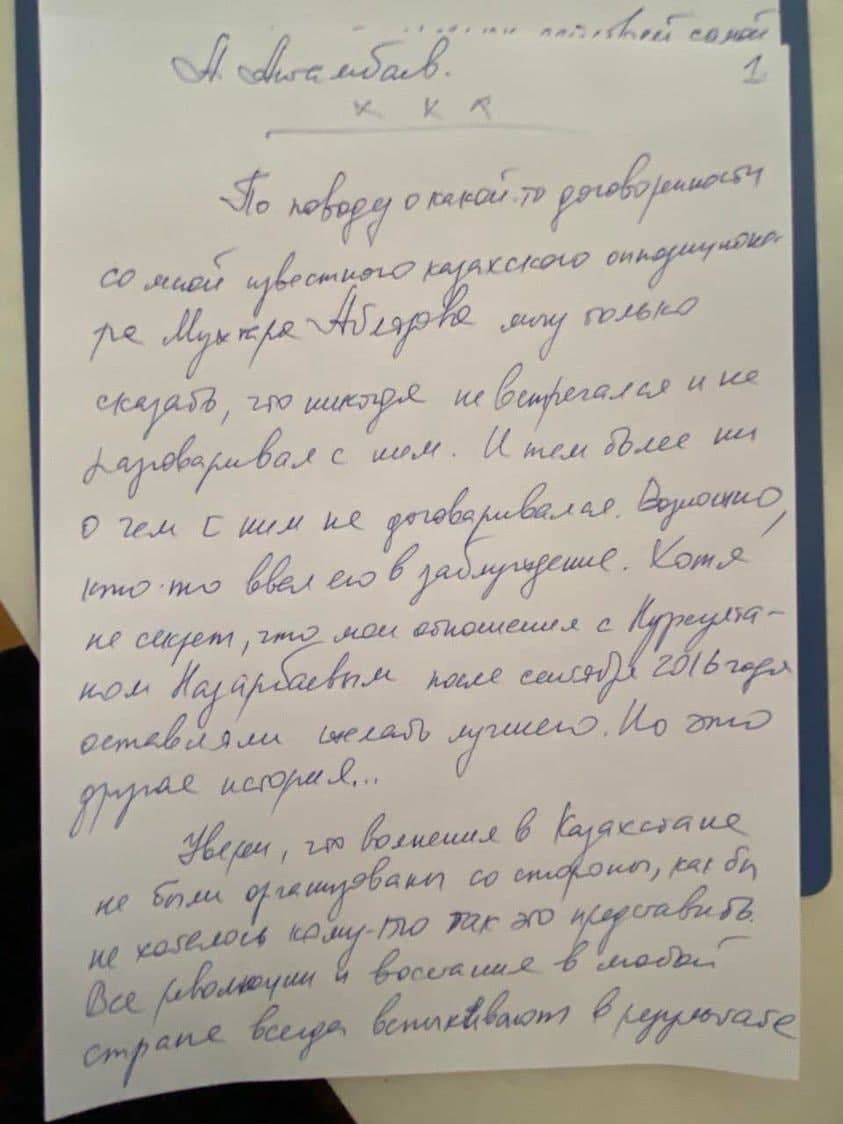 самой
А. Атамбаев.
1
х х х
По поводу о какой-то договоренности
со мной известного казахского оппозиционе-
ра Мухтара Аблязова могу только
сказать, что никогда не встречался и не
разговаривал с ним. И тем более ни
о чем с ним не договаривался. Возможно,
кто-то ввел его в заблуждение. Хотя
не секрет, что мои отношения с Нурсулта-
ном Назарбаевым после сентября 2016 года
оставляли желать лучшего. Но это
другая история...
Уверен, что волнения в Казахстане
не были организованы со стороны, как бы
не хотелось кому-то так это представить.
Все революции и восстания в любой
стране всегда вспыхивают в результате